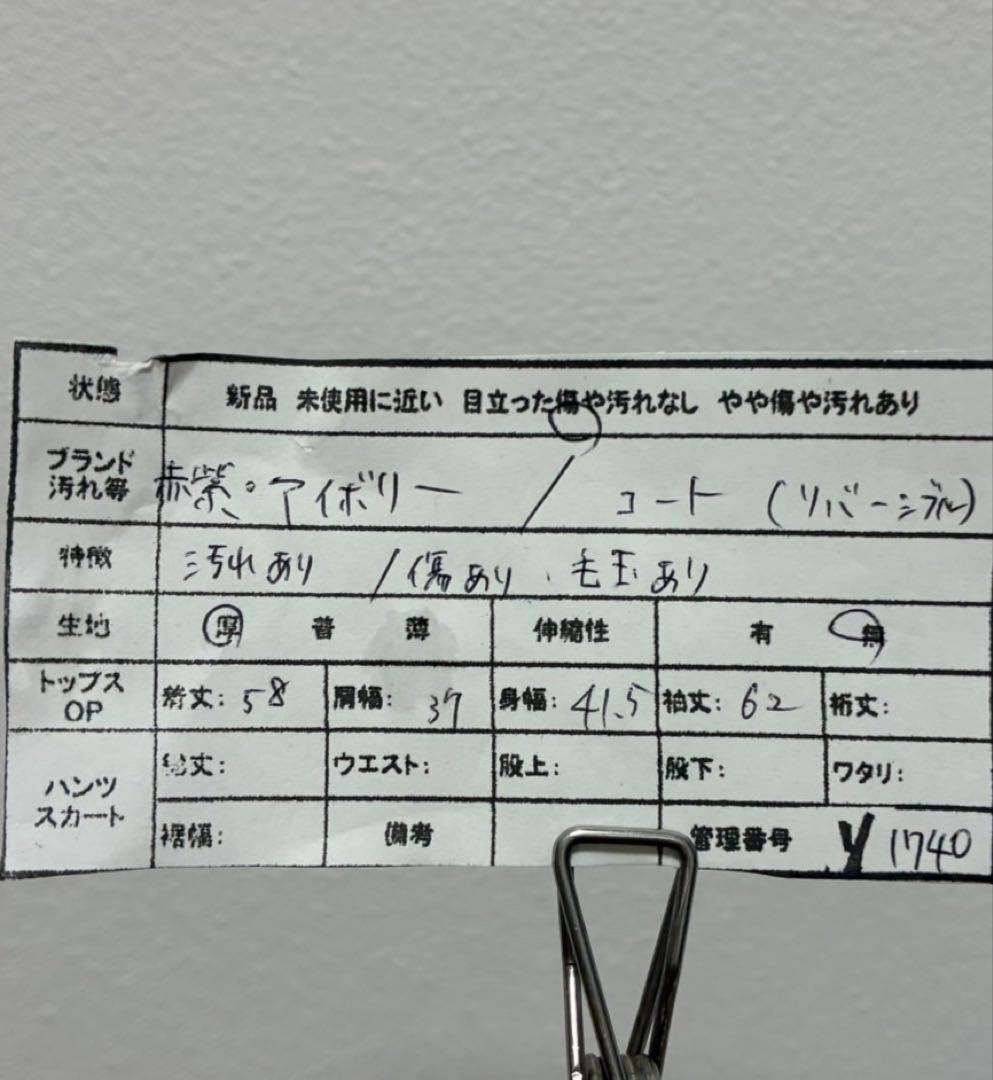 状態 新品 未使用に近い 目立った傷や汚れなし やや傷や汚れあり
ブランド
汚れ等 赤紫。アイボリー / コート (リバーシブル)
特徴 汚れあり /傷あり、毛玉あり
生地 厚 普 薄 伸縮性 有 無
トップス
OP 着丈: 58 肩幅: 37 身幅: 41.5 袖丈: 62 裄丈:
パンツ
スカート 総丈: ウエスト: 股上: 股下: ワタリ:
裾幅: 備考 管理番号 Y 1740